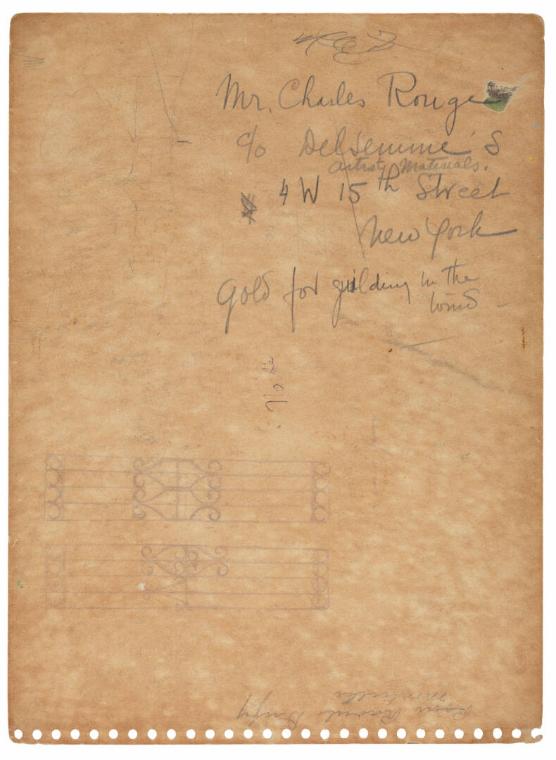 Mr. Charles Rouge
c/o Delsemme's
Artists Materials.
4 W 15th Street
New York
Gold for guilding in the
wind
Raoul Dufy